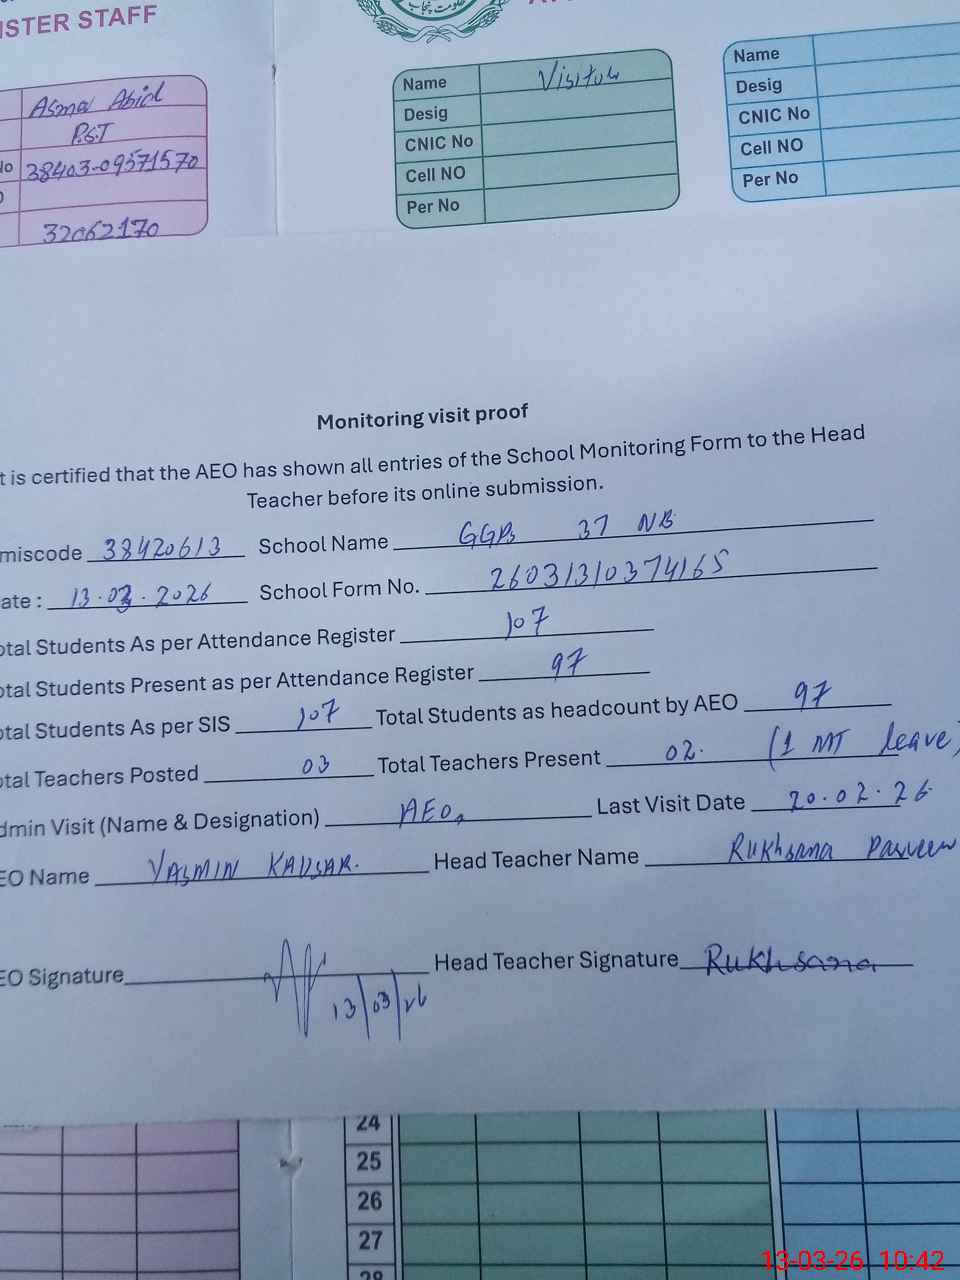 ISTER STAFF
Asma Abid
P.S.T
No 38403-09571570
32062170
حکومت پنجاب
Name Visitor
Desig
CNIC No
Cell NO
Per No
Name
Desig
CNIC No
Cell NO
Per No
Monitoring visit proof
t is certified that the AEO has shown all entries of the School Monitoring Form to the Head
Teacher before its online submission.
miscode 38420613 School Name GGPS 37 NB
ate : 13.03.2026 School Form No. 26031310374165
otal Students As per Attendance Register 107
otal Students Present as per Attendance Register 97
otal Students As per SIS 107 Total Students as headcount by AEO 97
otal Teachers Posted 03 Total Teachers Present 02. (1 MT leave)
dmin Visit (Name & Designation) AEO, Last Visit Date 20.02.26
EO Name YASMIN KAUSAR. Head Teacher Name Rukhsana Parveen
EO Signature Head Teacher Signature Rukhsana
13/03/26
24
25
26
27
28
13-03-26 10:42